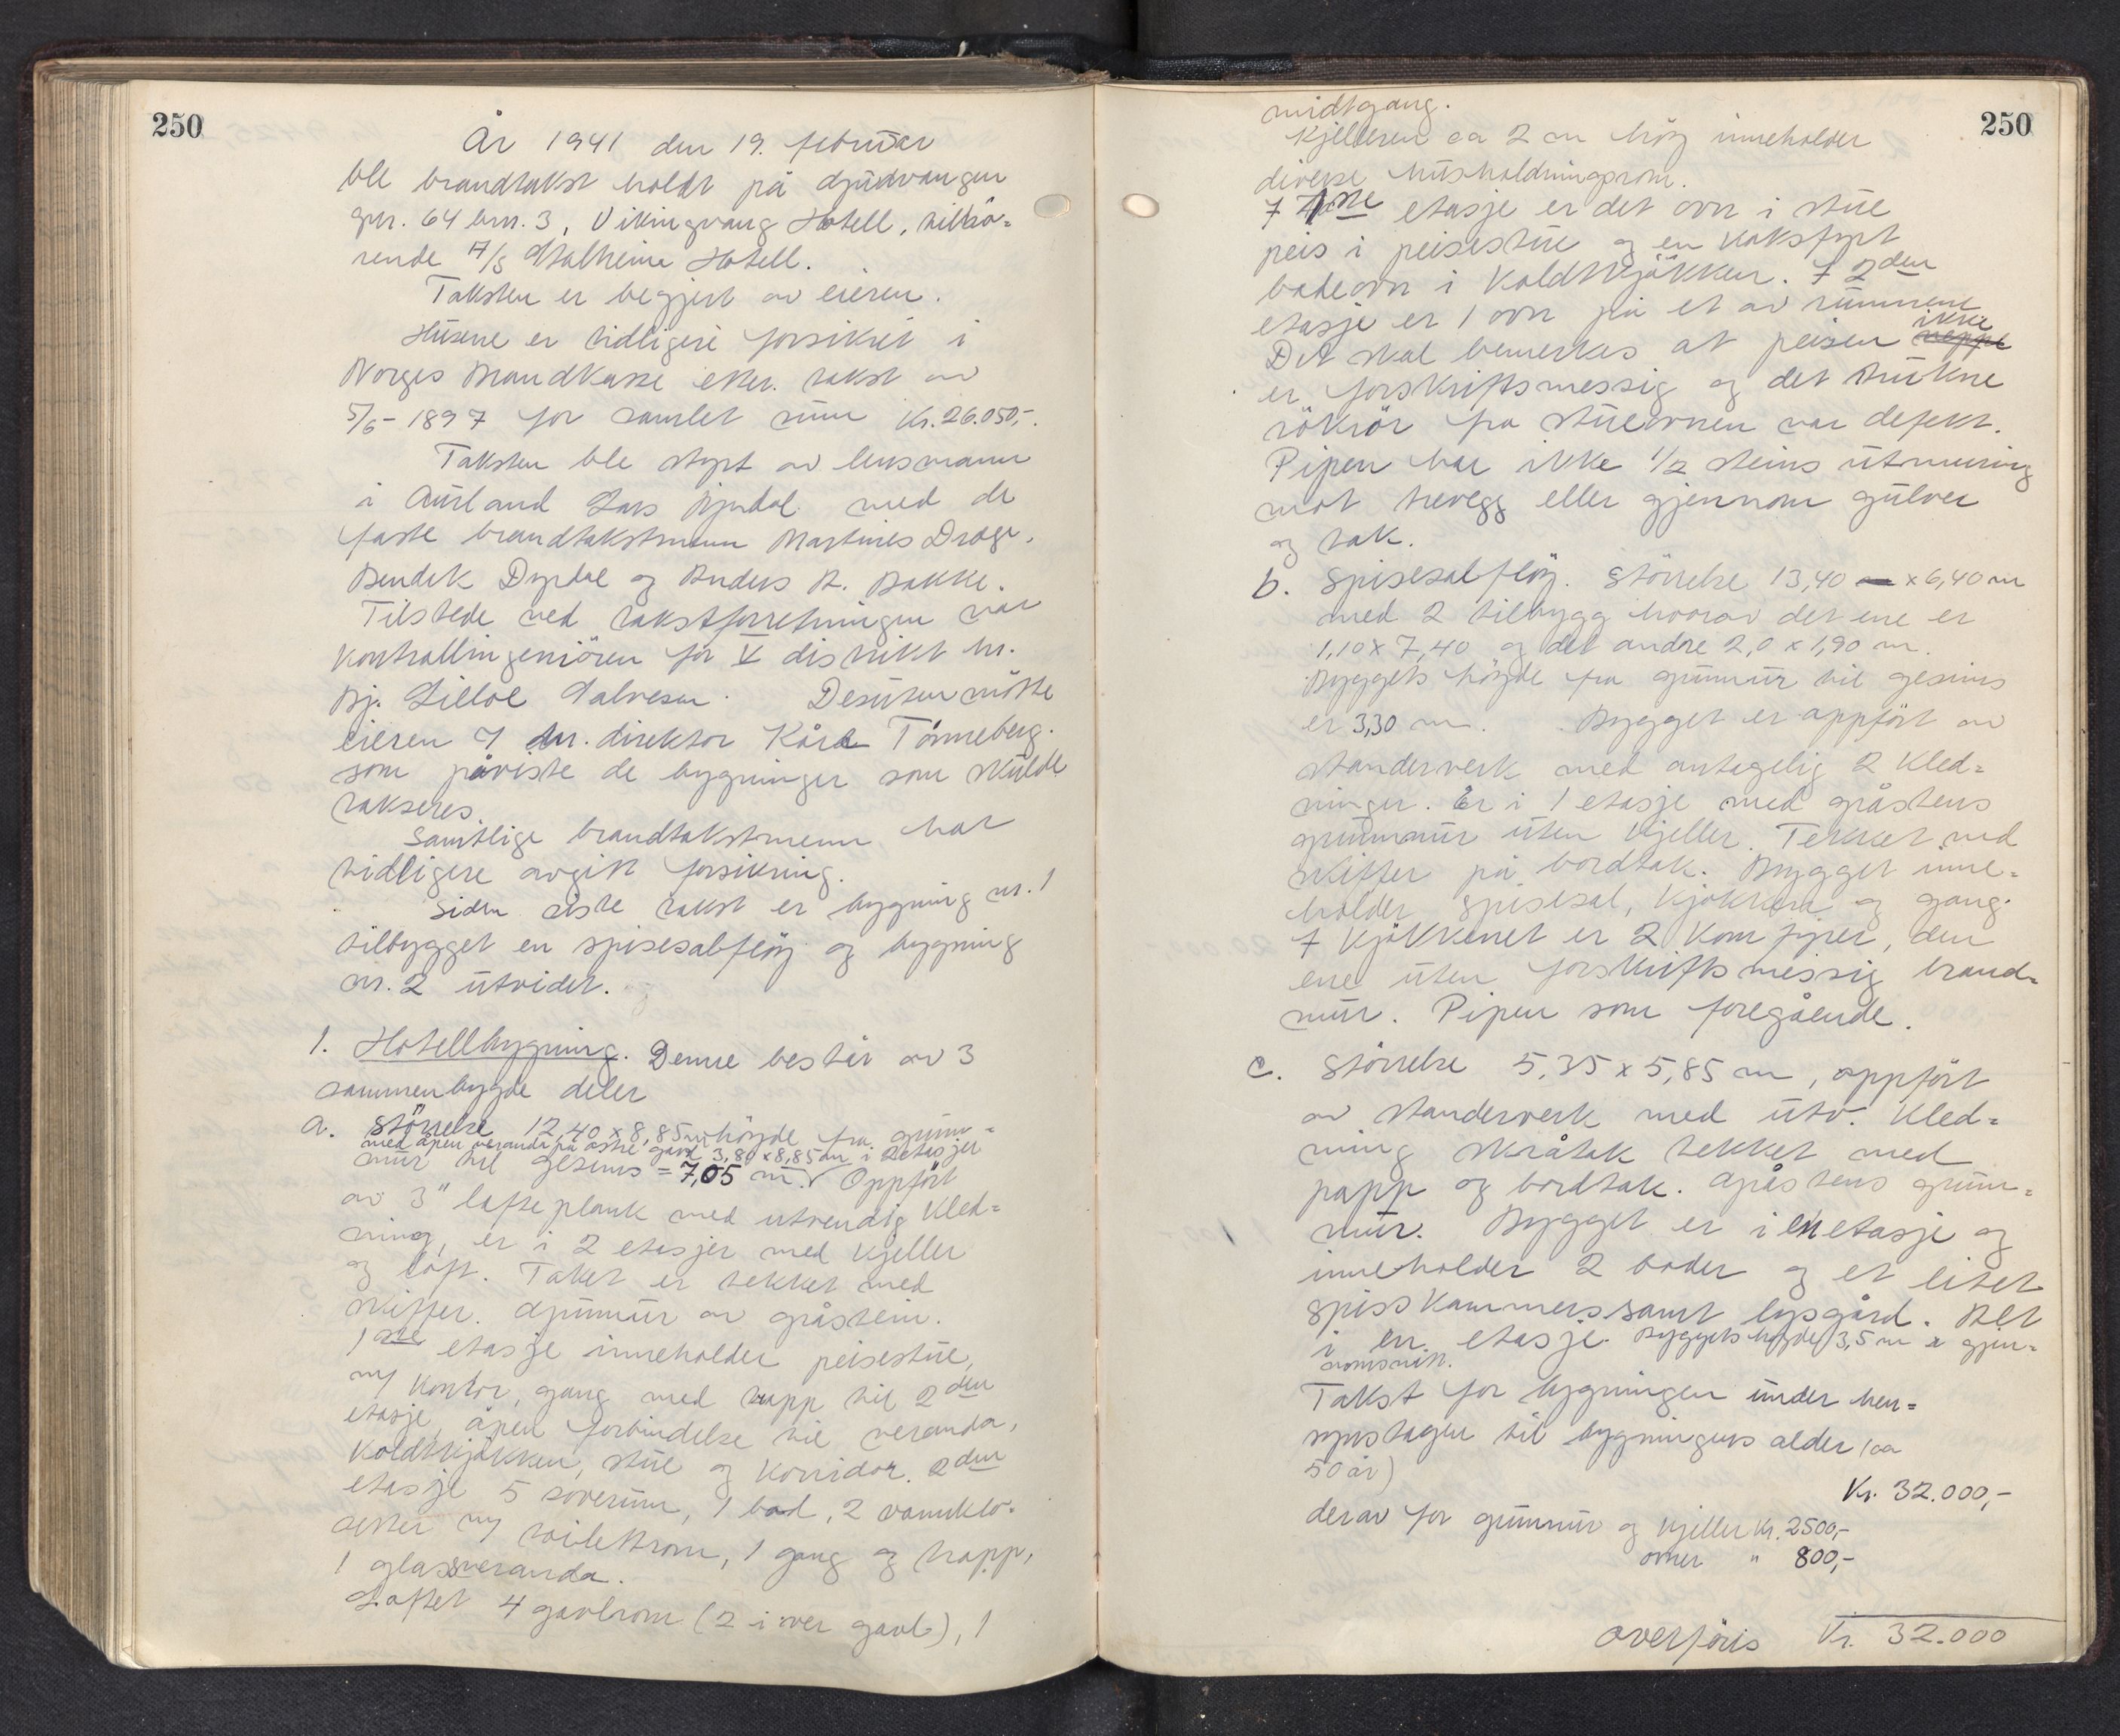 250
År 1941 den 19. februar
ble brandtakst holdt på Gudvangen
gnr. 64 brn. 3, Vikingvang Hotell, tilhö-
rende A/S Stalheim Hotell.
Taksten er begjert av eieren.
Husene er tidligere forsikret i
Norges Brandkasse etter takst av
5/6-1897 for samlet sum kr. 26.050,-.
Taksten ble styrt av lensmann
i Aurland Lars med de
faste brandtakstmenn Martinus Drage,
Bendik Dyrdal og Anders A. Bakke.
Tilstede ved takstforretningen var
kontrollingeniören for V distrikt hr.
Bj. Lilloe Salvesen. Desuten mötte
eieren hr. direktor Kåre Tönneberg.
som påviste de bygninger som skulde
takseres.
Samtlige brandtakstmenn har
tidligere avgitt forsikring.
Siden siste takst er bygning nr. 1
tilbygget en spisesalflöy og bygning
nr. 2 utvidet.
1. Hotellbygning. Denne består av 3
sammenbygde deler
a. Störrelse 12,40 x 8,85 m höyde fra grunn-
med åpen veranda på östre gavl 3,80 x 8,85 m i 2 etasjer
mur til gesims = 7,05 m. √ Oppfört
av 3" lafteplank med utvendig kled-
ning, er i 2 etasjer med kjeller
og loft. Taket er tekket med
skiffer. Grunnmur av gråstein.
1ste etasje inneholder peisestue,
ny kontor, gang med trapp til 2den
etasje, åpen forbindelse til veranda,
koldtkjökken, stue og korridor. 2den
etasje 5 soverum, 1 bad, 2 vannklo-
setter m/ toilettrom, 1 gang og trapp,
1 glassveranda.
Loftet 4 gavlrom (2 i ver gavl), 1
250
midtgang.
Kjelleren ca 2 m höy inneholder
diverse husholdningsrom.
I 1ste etasje er det ovn i stue
peis i peisestue og en koksfyrt
badeovn i koldtkjökken. I 2den
etasje er 1 ovn på et av rummene
ikke
Det skal bemerkes at peisen neppe
er forskriftsmessig og det brukne
rökrör fra stueovnen var defekt.
Pipen har ikke 1/2 steins utmuring
mot trevegg eller gjennom gulver
og tak.
b. Spisesalflöy. Störrelse 13,40 m x 6,40 m
med 2 tilbygg hvorav det ene er
1,10 x 7,40 og det andre 2,0 x 1,90 m.
Byggets höyde fra grunnmur til gesims
er 3,30 m. Bygget er oppfört av
standerverk med antagelig 2 kled-
ninger. Er i 1 etasje med gråstens
grunnmur uten kjeller. Tekket med
skiffer på bordtak. Bygget inne-
holder spisesal, kjökken og gang.
I kjökkenet er 2 komfyrer, den
ene uten forskriftsmessig brand-
mur. Pipen som foregående.
c. Störrelse 5,35 x 5,85 m, oppfört
av standerverk med utv. kled-
ning skråtak tekket med
papp og bordtak. Gråstens grunn-
mur. Bygget er i en etasje og
inneholder 2 boder og et litet
spisskammers samt lysgård. Alt
i en etasje. Byggets höyde 3,5 m i gjen-
nomsnitt.
Takst for bygningen under hen-
synstagen til bygningens alder (ca
50 år)
Kr. 32.000,-
derav for grunnmur og kjeller kr. 2500,-
ovner " 800,-
overföres Kr. 32.000